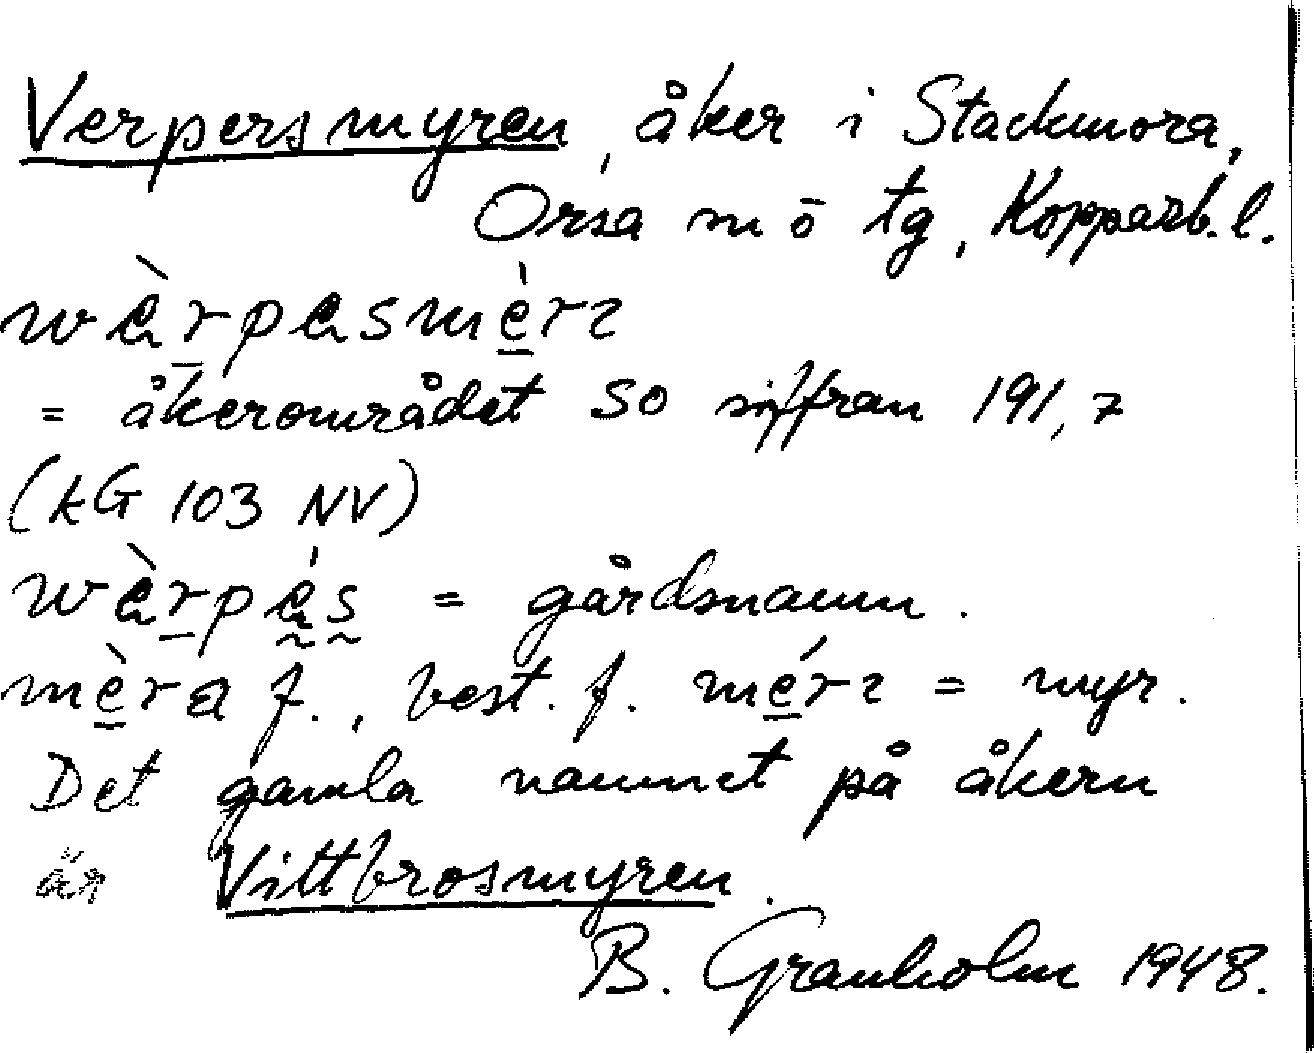 Verpersmyren, åker i Stackmora,
Orsa sn o tg, Kopparb. l.
wèrpesmèrɪ
= åkerområdet SO siffran 191,7
(kG 103 NV)
wèrpės = gårdsnamn.
mèra f., best. f. mérɪ = myr.
Det gamla namnet på åkern
är Vittbrosmyren.
B. Granholm 1948.